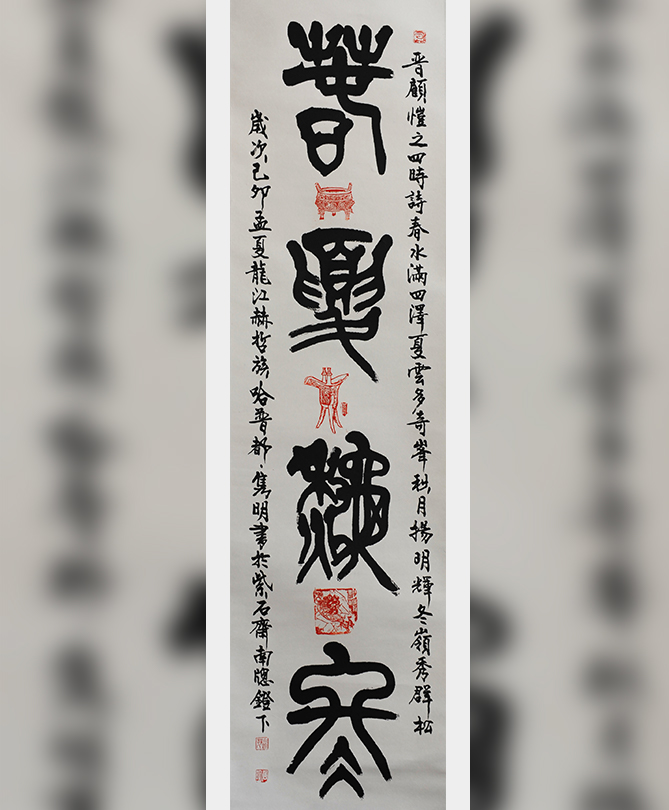 晋顧愷之四時詩春水滿四澤夏雲多奇峯秋月揚明輝冬嶺秀群松
春
夏
秋
冬
歲次己卯孟夏龍江赫哲族哈普都·隽明書於紫石齋南窻鐙下